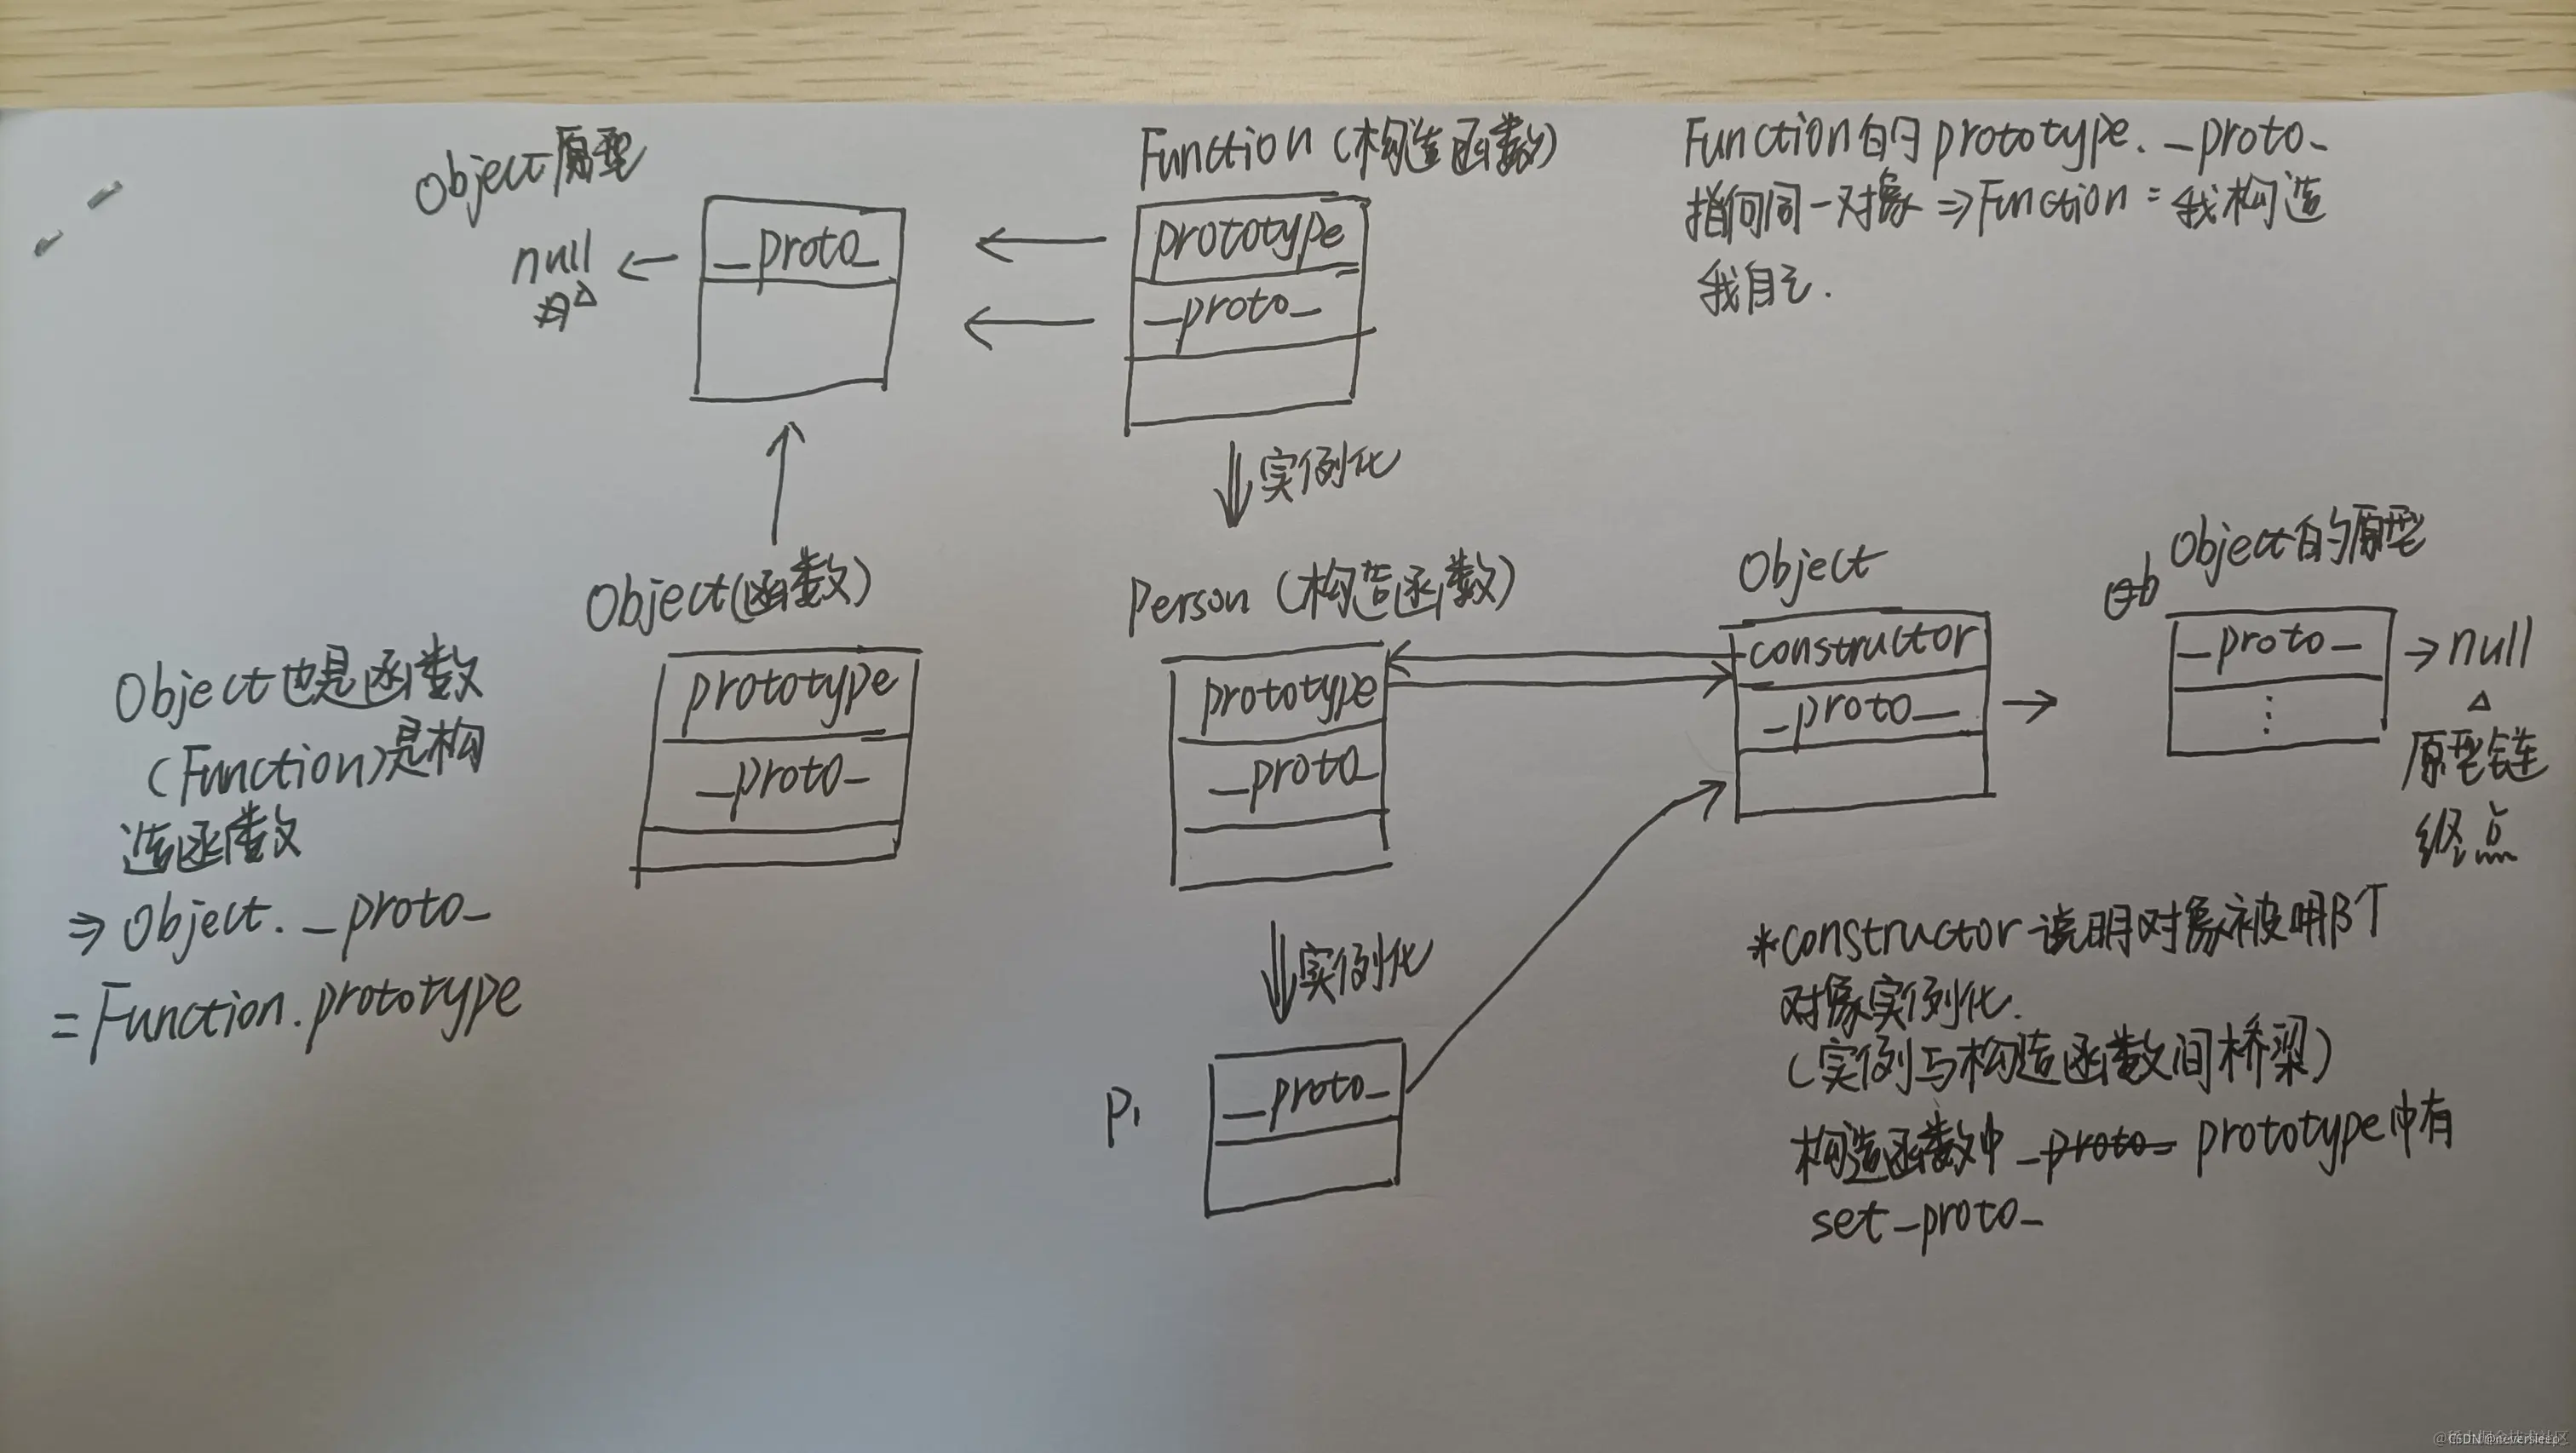 Object原型
null
_proto_
Function (构造函数)
prototype
_proto_
Function的prototype. _proto_
指向同一对象 ⇒ Function = 我构造
我自己.
实例化
Object(函数)
prototype
_proto_
Object也是函数
(Function)是构
造函数
⇒ Object. _proto_
= Function.prototype
Person (构造函数)
prototype
_proto_
Object
constructor
_proto_
Object的原型
_proto_
→ null
原型链
终点
实例化
P1
_proto_
*constructor 说明对象被哪个
对象实例化.
(实例与构造函数间桥梁)
构造函数中 _proto_ prototype中有
set _proto_
CSDN @neversleep